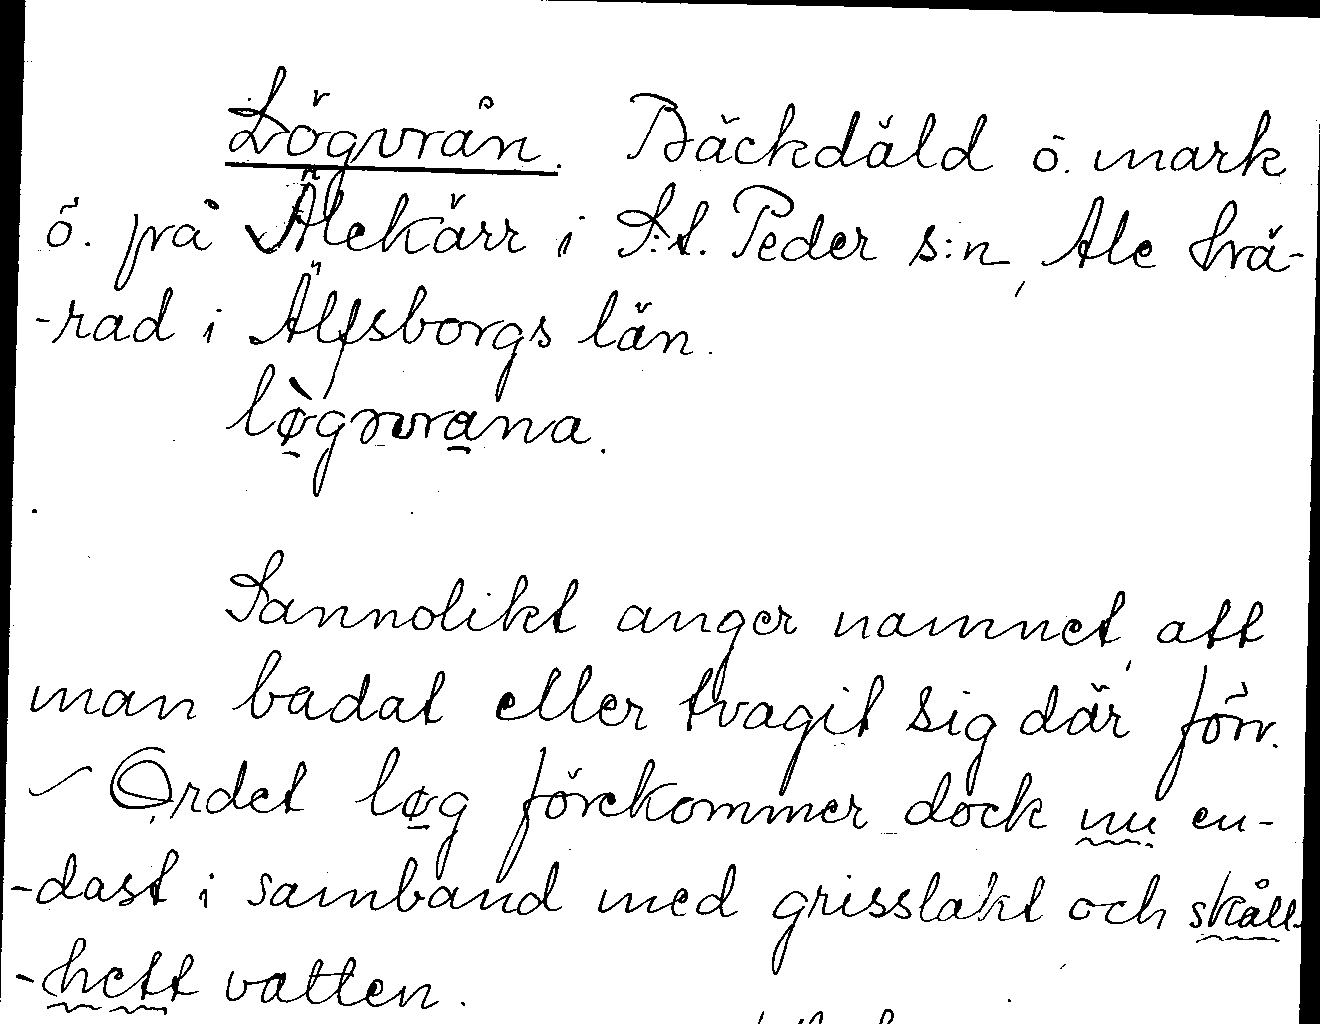 Lögvrån. Bäckdäld ö. mark
ö. på Älekärr i S:t. Peder s:n, Ale hä-
-rad i Älfsborgs län.
lø̀gvrana.
Sannolikt anger namnet, att
man badat eller tvagit sig där förr.
Ordet løg förekommer dock nu en-
-dast i samband med grisslakt och skåll-
-hett vatten.